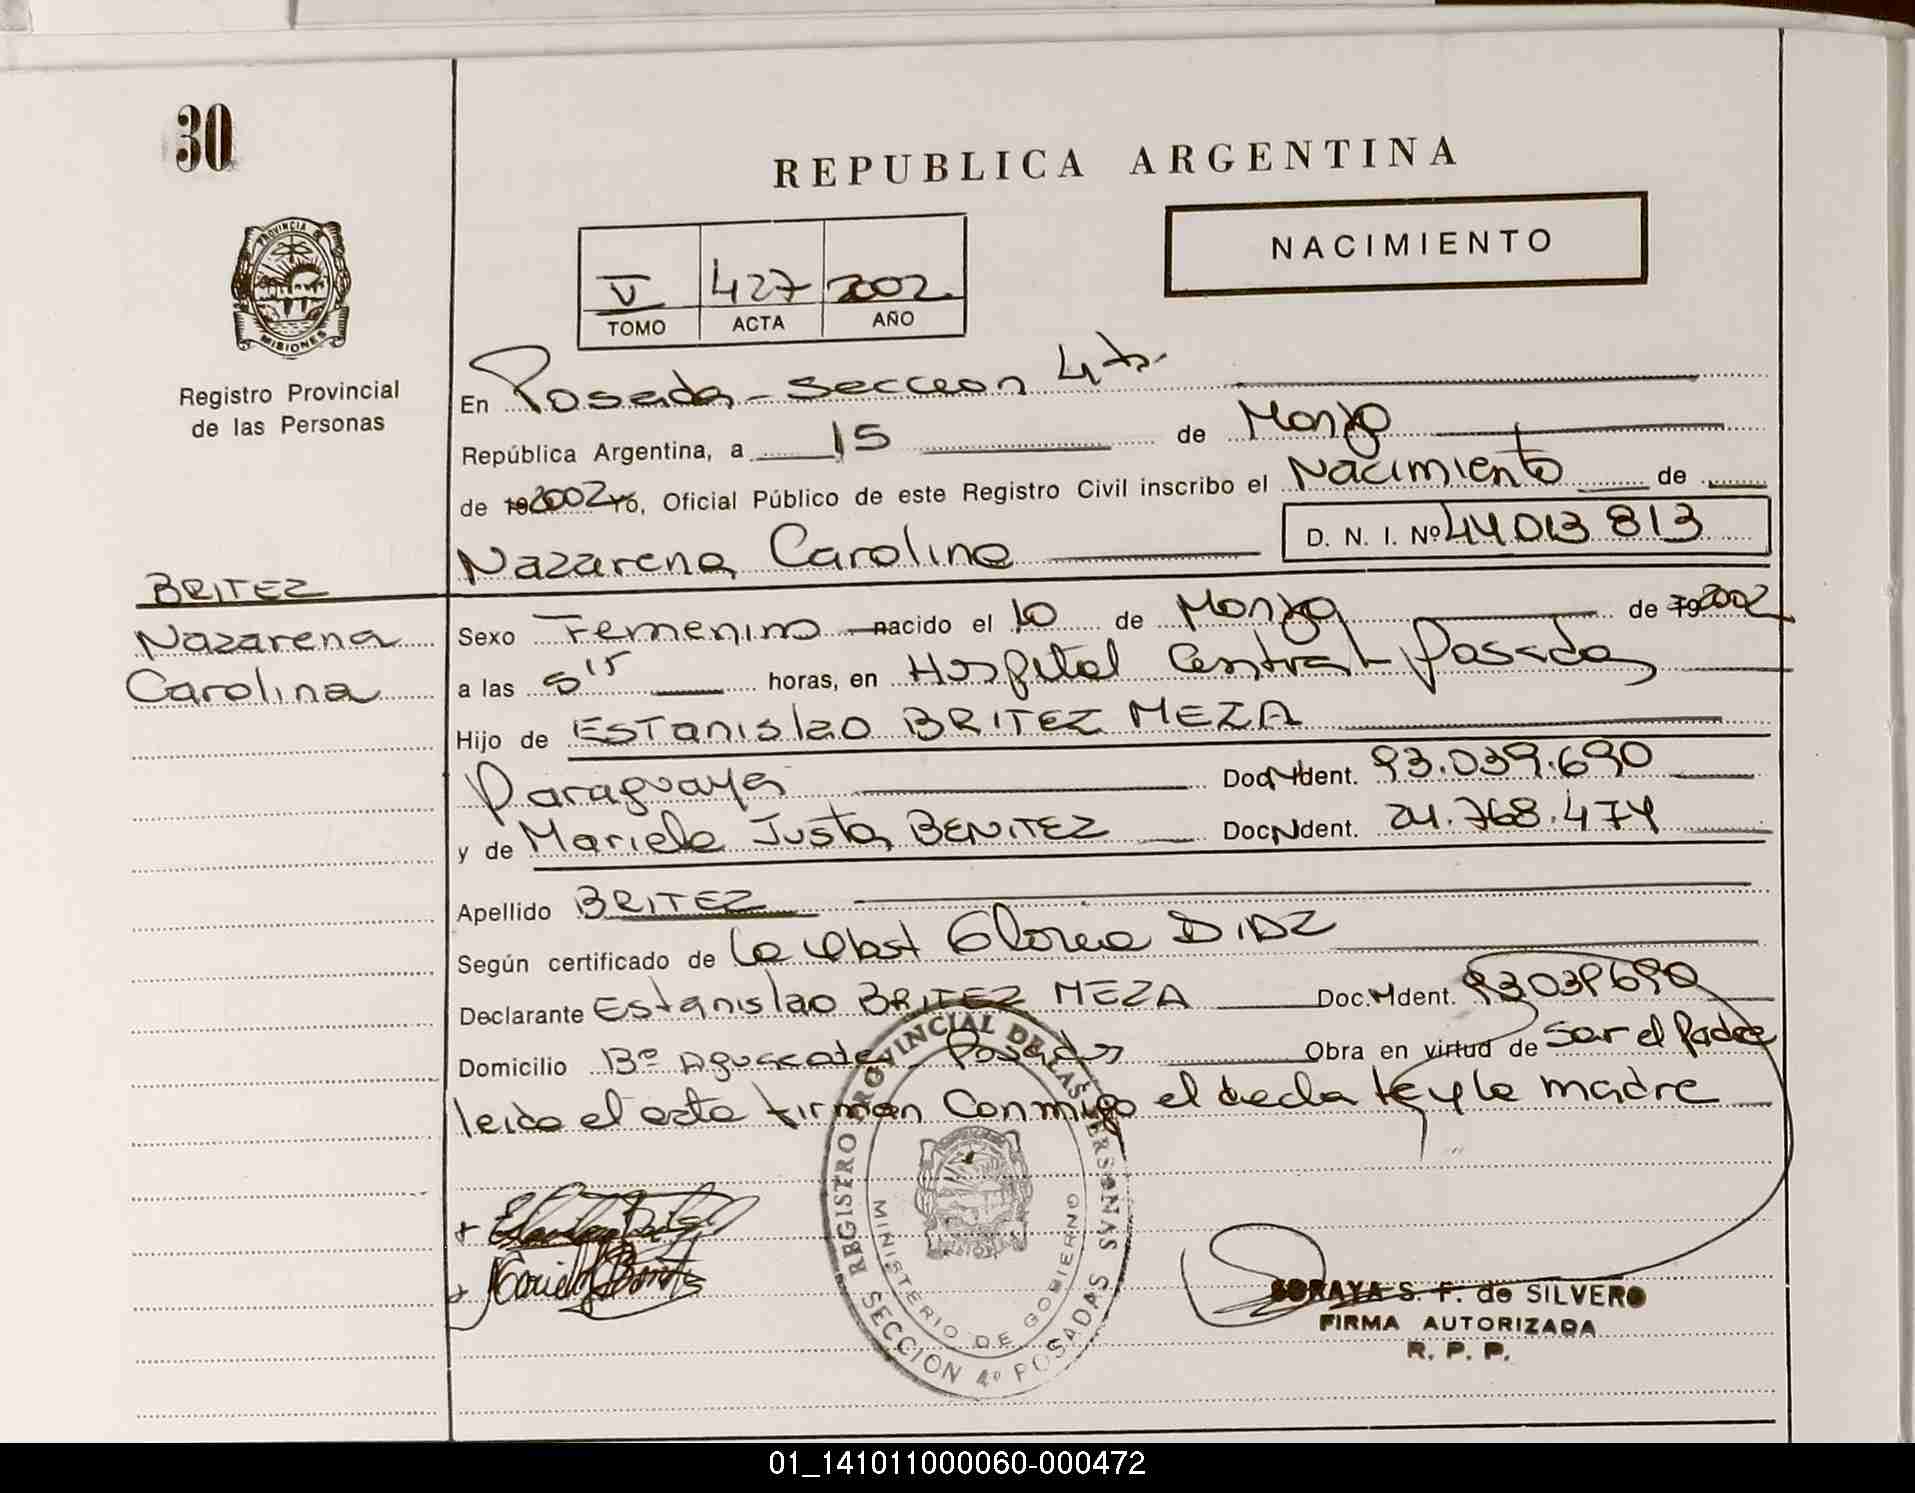 30
REPUBLICA ARGENTINA
NACIMIENTO
V 427 2002
TOMO ACTA AÑO
PROVINCIA DE
MISIONES
Registro Provincial
de las Personas
En Posadas - Seccion 4ta.
República Argentina, a 15 de Marzo
de 19 2002 Yo, Oficial Público de este Registro Civil inscribo el Nacimiento de
Nazarena Carolina D. N. I. Nº 44.013.813
BRITEZ
Nazarena
Carolina
Sexo Femenino nacido el 10 de Marzo de 19 2002
a las 5 15 horas, en Hospital Central Posadas
Hijo de Estanislao BRITEZ MEZA
Paraguaya Doc. Ident. 93.039.690
y de Mariela Justa BENITEZ Doc. Ident. 24.768.474
Apellido BRITEZ
Según certificado de la Obst Gloria DIAZ
Declarante Estanislao BRITEZ MEZA Doc. Ident. 93039690
Domicilio Bº Posadas Obra en virtud de ser el Padre
leida el acta firman Conmigo el decla te y la madre
REGISTRO PROVINCIAL DE LAS PERSONAS
MINISTERIO DE GOBIERNO
SECCION 4º POSADAS
SORAYA S. F. de SILVERO
FIRMA AUTORIZADA
R. P. P.
01_141011000060-000472